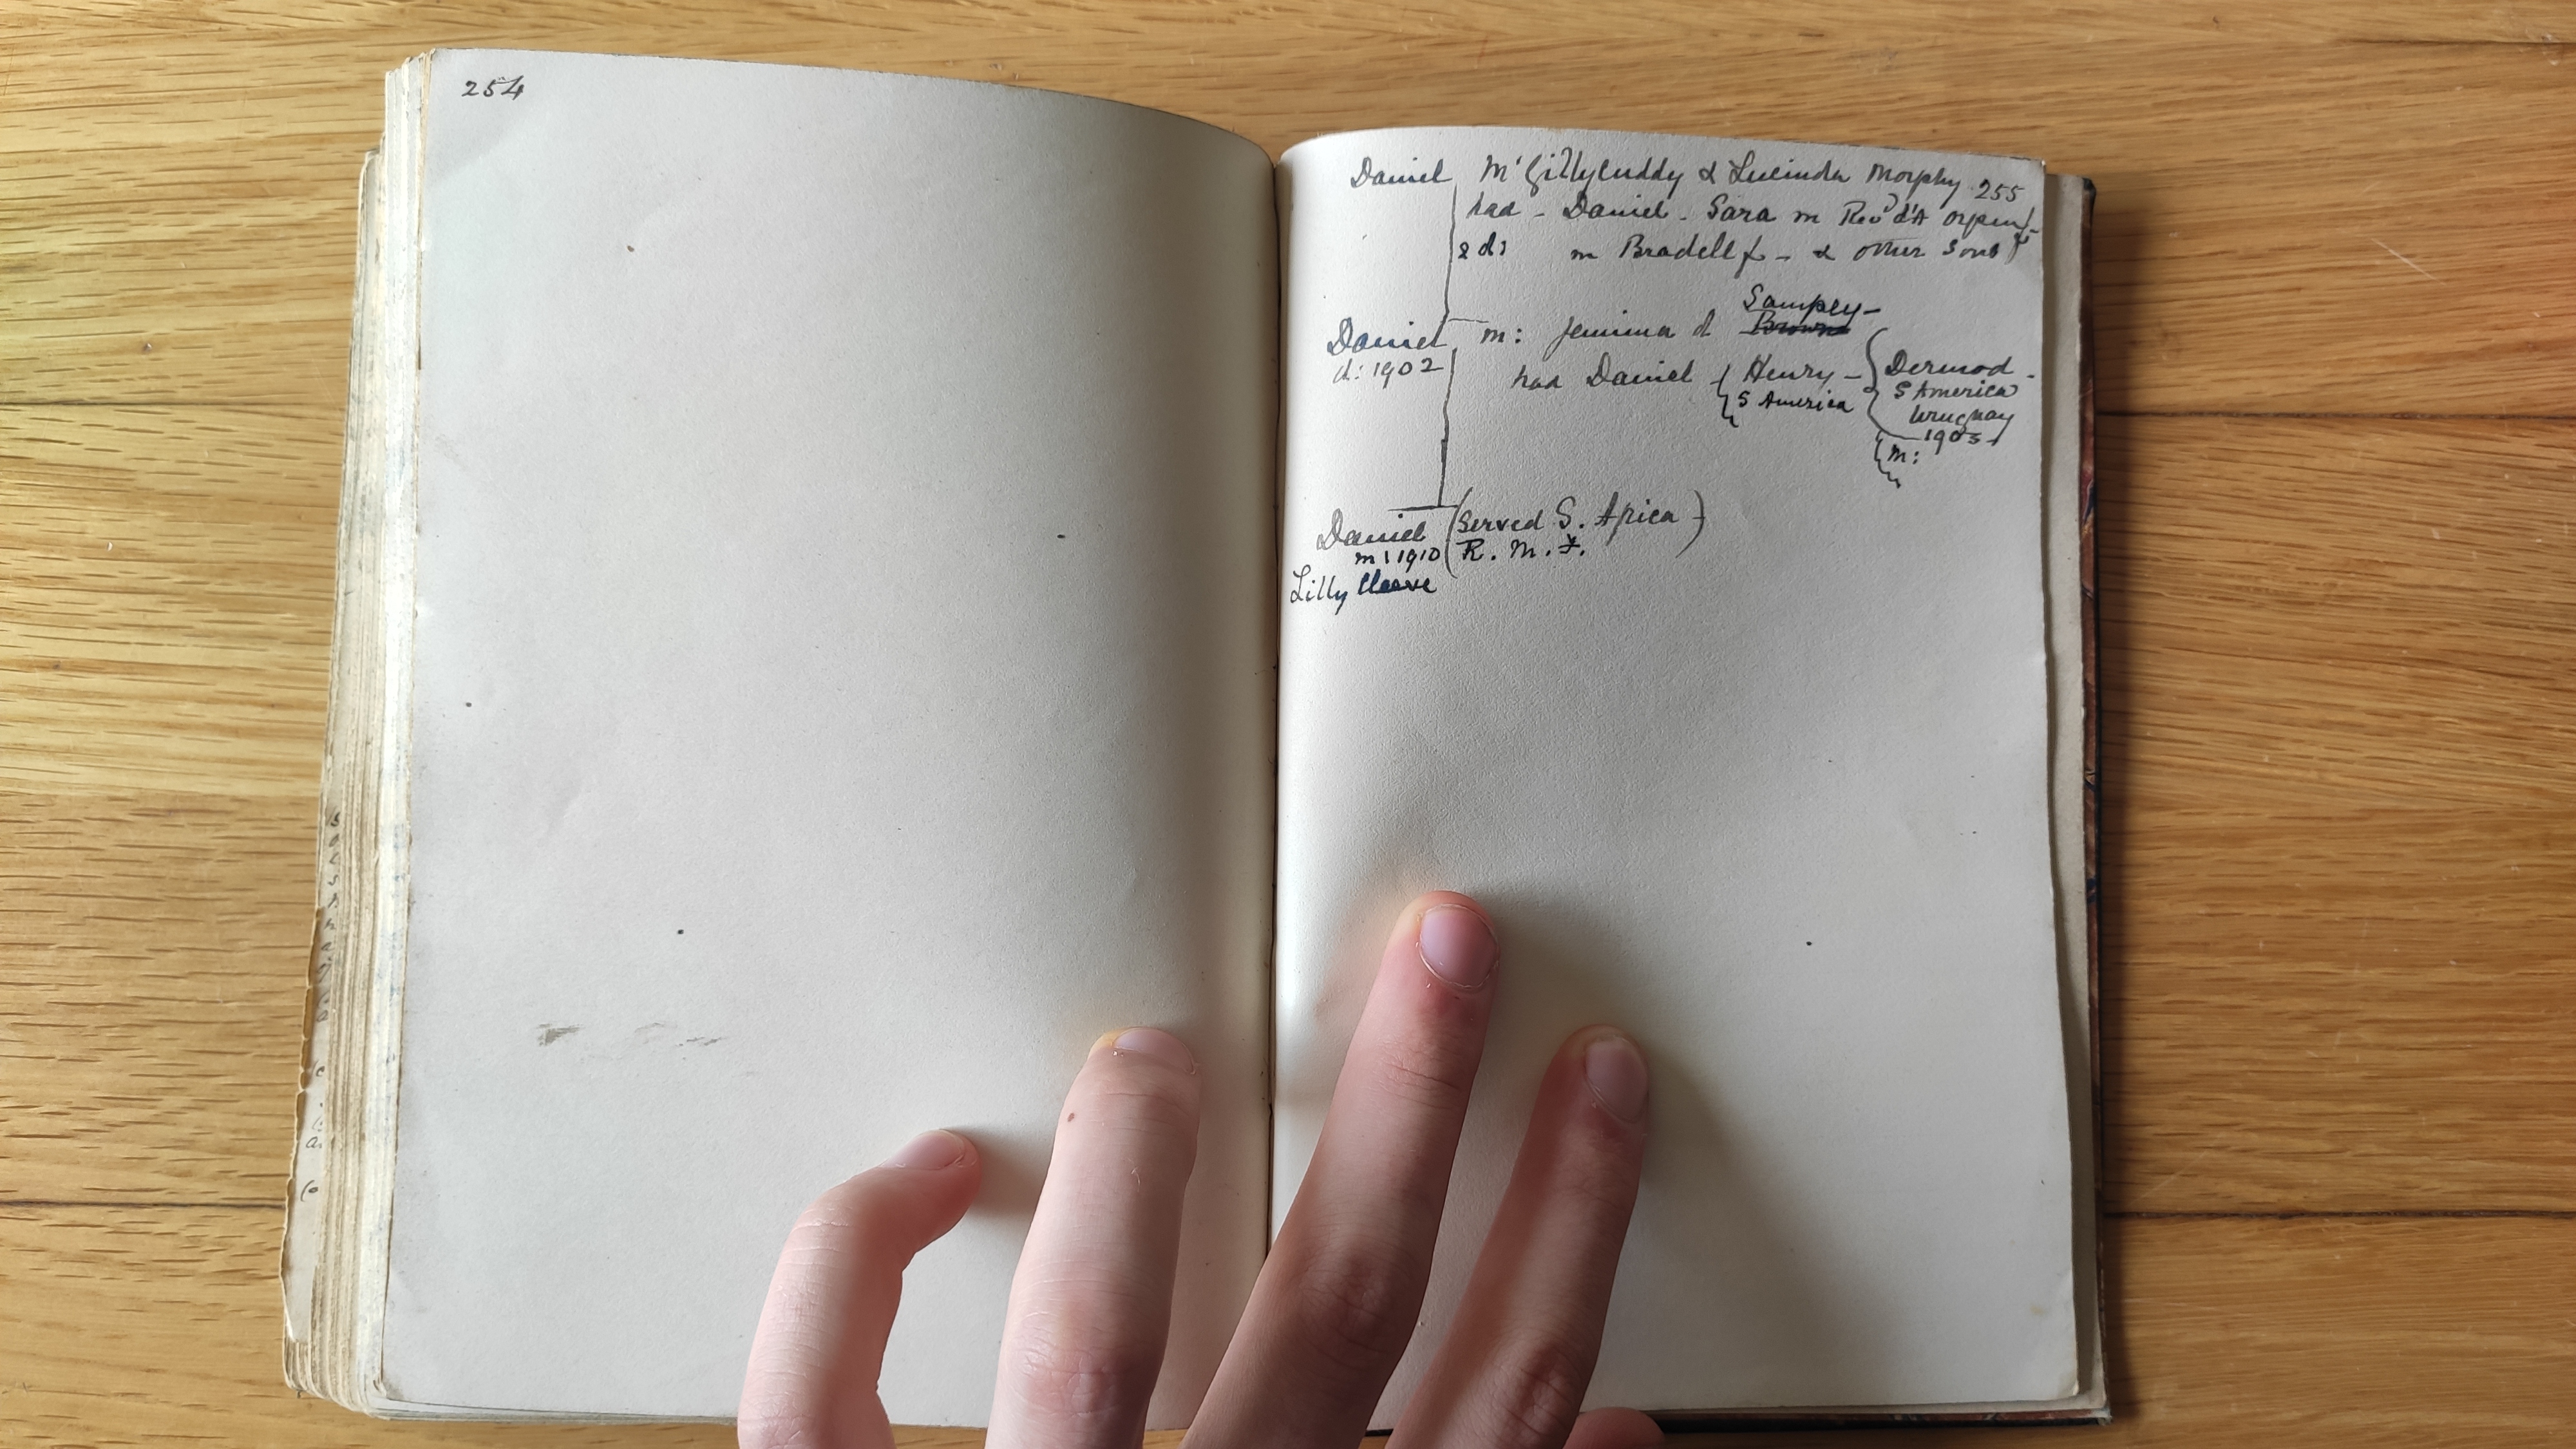 254
Daniel M'Gillycuddy & Lucinda Morphy 255
had - Daniel - Sara m Revd A Orpen
2 d: m Bradell - & other sons
Sampey -
Daniel m: Jemima d Browne
d: 1902
had Daniel { Henry - { Dermod -
S America
S America
Uruguay
1903
m:
Daniel (Served S. Africa)
m: 1910 R. M. F.
Lilly Cleeve